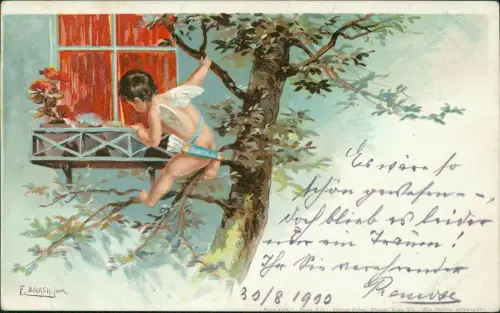 Es wäre so
schön gewesen - -,
doch blieb es leider
nur ein Traum!
Ihr Sie verehrender
30/8 1900
F. DOUBEK jun.